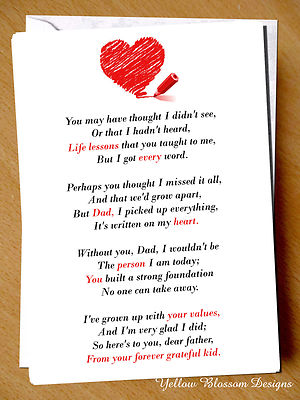 You may have thought I didn't see,
Or that I hadn't heard,
Life lessons that you taught to me,
But I got every word.
Perhaps you thought I missed it all,
And that we'd grow apart,
But Dad, I picked up everything,
It's written on my heart.
Without you, Dad, I wouldn't be
The person I am today;
You built a strong foundation
No one can take away.
I've grown up with your values,
And I'm very glad I did;
So here's to you, dear father,
From your forever grateful kid.
Yellow Blossom Designs